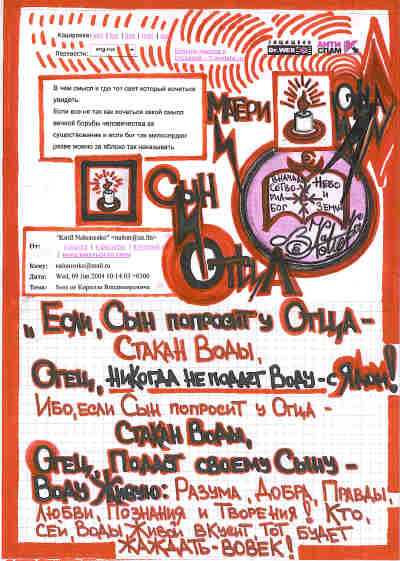 Кодировка:
Перевести:
ЗАЩИЩЕНО
Dr.WEB
АНТИ
СПАМ
В чем смысл и где тот свет который хочеться
увидеть.
Если все не так как хочеться какой смысл
вечной борьбы человечества за
существование и если бог так милосерден
разве можно за яблоко так наказывать.
МАТЕРИ
СЫН
И
СЫН
ОТЦА
ВНАЧАЛЕ
СОТВО
РИЛ
БОГ
НЕБО
И
ЗЕМЛЮ
От:
Кому:
Дата: Wed, 09 Jun 2004 10:14:03 +0300
Тема:
„ЕСЛИ, СЫН ПОПРОСИТ У ОТЦА -
СТАКАН ВОДЫ,
ОТЕЦ, НИКОГДА НЕ ПОДАСТ ВОДУ - С ЯДОМ!
ИБО, ЕСЛИ СЫН ПОПРОСИТ У ОТЦА -
СТАКАН ВОДЫ,
ОТЕЦ, ПОДАСТ СВОЕМУ СЫНУ -
ВОДУ ЖИВУЮ: РАЗУМА, ДОБРА, ПРАВДЫ,
ЛЮБВИ, ПОЗНАНИЯ И ТВОРЕНИЯ! КТО,
СЕЙ, ВОДЫ ЖИВОЙ ВКУСИТ, ТОТ БУДЕТ
ЖАЖДАТЬ - ВОВЕК!